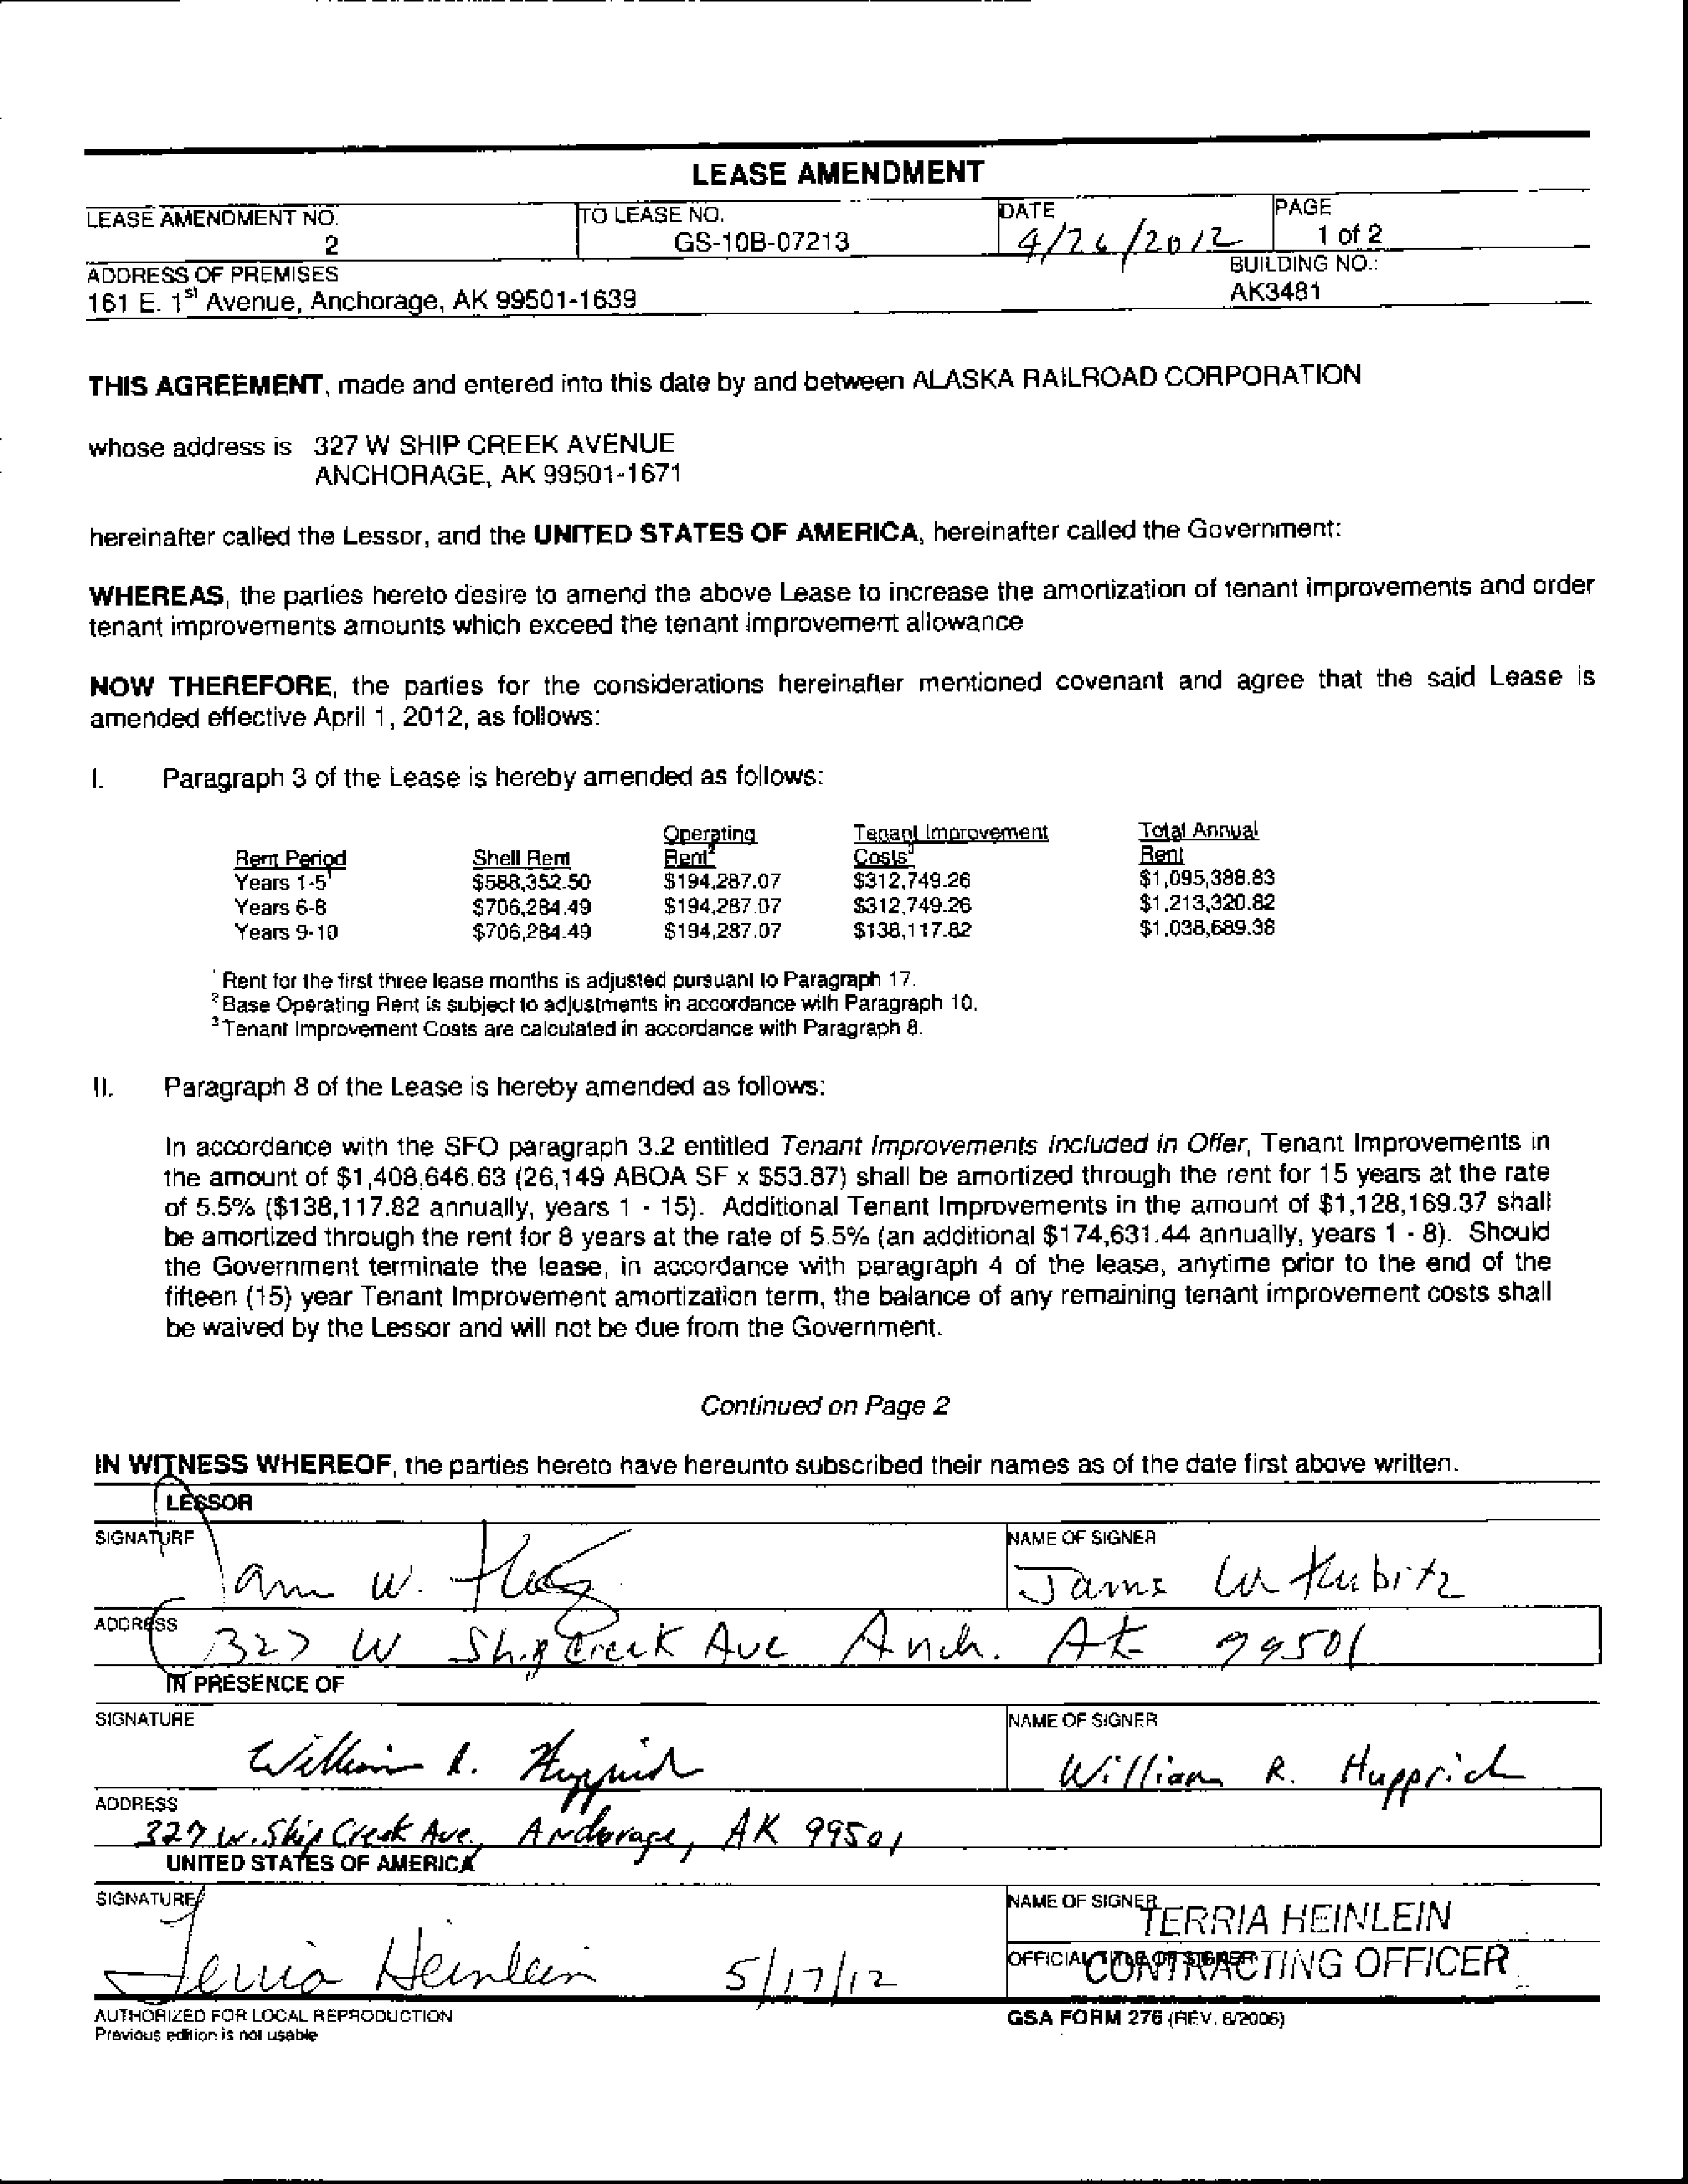 LEASE AMENDMENT
LEASE AMENDMENT NO. TO LEASE NO. DATE PAGE
2 GS-10B-07213 4/26/2012 1 of 2
ADDRESS OF PREMISES BUILDING NO.:
161 E. 1st Avenue, Anchorage, AK 99501-1639 AK3481
THIS AGREEMENT, made and entered into this date by and between ALASKA RAILROAD CORPORATION
whose address is 327 W SHIP CREEK AVENUE
ANCHORAGE, AK 99501-1671
hereinafter called the Lessor, and the UNITED STATES OF AMERICA, hereinafter called the Government:
WHEREAS, the parties hereto desire to amend the above Lease to increase the amortization of tenant improvements and order
tenant improvements amounts which exceed the tenant improvement allowance
NOW THEREFORE, the parties for the considerations hereinafter mentioned covenant and agree that the said Lease is
amended effective April 1, 2012, as follows:
I. Paragraph 3 of the Lease is hereby amended as follows:
Operating Tenant Improvement Total Annual
Rent Period Shell Rent Rent² Costs³ Rent
Years 1-5¹ $588,352.50 $194,287.07 $312,749.26 $1,095,388.83
Years 6-8 $706,284.49 $194,287.07 $312,749.26 $1,213,320.82
Years 9-10 $706,284.49 $194,287.07 $138,117.82 $1,038,689.38
¹ Rent for the first three lease months is adjusted pursuant to Paragraph 17.
² Base Operating Rent is subject to adjustments in accordance with Paragraph 10.
³ Tenant Improvement Costs are calculated in accordance with Paragraph 8.
II. Paragraph 8 of the Lease is hereby amended as follows:
In accordance with the SFO paragraph 3.2 entitled Tenant Improvements Included in Offer, Tenant Improvements in
the amount of $1,408,646.63 (26,149 ABOA SF x $53.87) shall be amortized through the rent for 15 years at the rate
of 5.5% ($138,117.82 annually, years 1 - 15). Additional Tenant Improvements in the amount of $1,128,169.37 shall
be amortized through the rent for 8 years at the rate of 5.5% (an additional $174,631.44 annually, years 1 - 8). Should
the Government terminate the lease, in accordance with paragraph 4 of the lease, anytime prior to the end of the
fifteen (15) year Tenant Improvement amortization term, the balance of any remaining tenant improvement costs shall
be waived by the Lessor and will not be due from the Government.
Continued on Page 2
IN WITNESS WHEREOF, the parties hereto have hereunto subscribed their names as of the date first above written.
LESSOR
SIGNATURE NAME OF SIGNER
W. James W Kubitz
ADDRESS
327 W Ship Creek Ave Anch. AK 99501
IN PRESENCE OF
SIGNATURE NAME OF SIGNER
William R. Hupprich William R. Hupprich
ADDRESS
327 W. Ship Creek Ave., Anchorage, AK 99501
UNITED STATES OF AMERICA
SIGNATURE NAME OF SIGNER TERRIA HEINLEIN
Terria Heinlein 5/17/12 OFFICIAL TITLE OF SIGNER CONTRACTING OFFICER
AUTHORIZED FOR LOCAL REPRODUCTION GSA FORM 276 (REV. 8/2006)
Previous edition is not usable